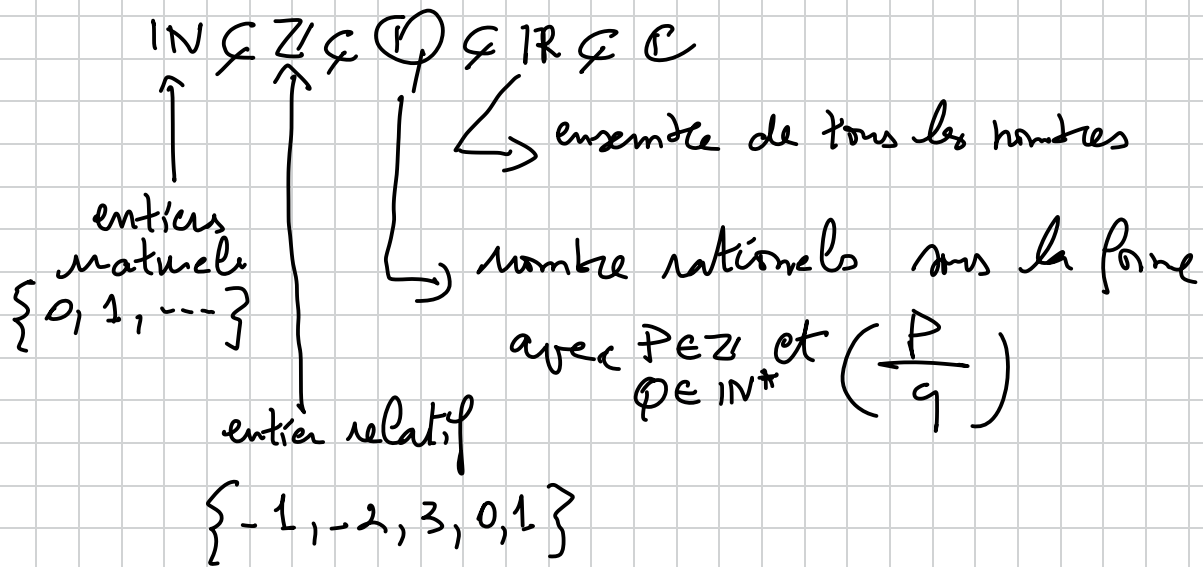 IN ⊊ ℤ ⊊ ℚ ⊊ IR ⊊ ℂ
ensemble de tous les nombres
entiers
naturels
{0, 1, ---}
nombre rationels sous la forme
avec P ∈ ℤ et (P/q)
Q ∈ IN*
entier relatif
{-1, -2, 3, 0, 1}